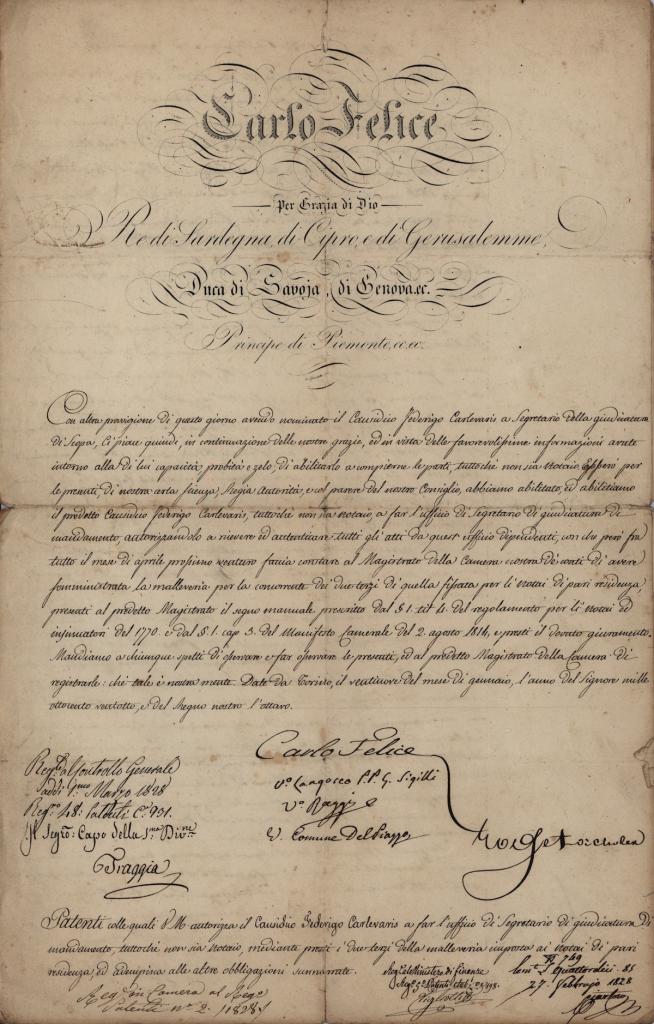 Carlo Felice
per Grazia di Dio
Re di Sardegna, di Cipro, e di Gerusalemme,
Duca di Savoja, di Genova, ec.
Principe di Piemonte, ec. ec.
Con altra provvigione di questo giorno avendo nominato il Causidico Federigo Carlevaris a Segretario della giudicatura
di Scopa, Ci piace quindi, in continuazione delle nostre grazie, ed in vista delle favorevolissime informazioni avute
intorno alla di lui capacità probità e zelo, di abilitarlo a compierne le parti, tuttochè non sia Notaio, Epperò per
le presenti, di nostra certa scienza, Regia Autorità, e col parere del nostro Consiglio, abbiamo abilitato, ed abilitiamo
il predetto Causidico Federigo Carlevaris, tuttochè non sia notaio, a far l'uffizio di Segretario di giudicatura di
mandamento, autorizzandolo a ricevere ed autenticare tutti gli atti da quest'uffizio dipendenti, con che però fra
tutto il mese di aprile prossimo venturo faccia constare al Magistrato della Camera nostra de' conti di avere
somministrata la malleveria per la concorrente dei due terzi di quella fissata per li Notai di pari residenza,
presenti al predetto Magistrato il segno manuale prescritto dal § 1. tit. 4. del regolamento per li Notai ed
insinuatori del 1770. e dal § 1. cap. 3. del Manifesto Camerale del 2. agosto 1814, e presti il dovuto giuramento.
Mandiamo a chiunque spetti di osservare e far osservare le presenti, ed al predetto Magistrato della Camera di
registrarle: chè tale è nostra mente. Date da Torino, il ventinove del mese di gennaio, l'anno del Signore mille
ottocento ventotto, e del Regno nostro l'ottavo.
Carlo Felice
Reg.to al Controllo Generale
addì 1.mo Marzo 1828
Reg.o 48: Patenti C.e 931.
Il Segro: Capo della 1.ma Div.ne
Fraggia
V.o Langosco P.P. G. Sigilli
V.o Raggi
V. Comune Del Piazzo
Patenti colle quali S. M. autorizza il Causidico Federigo Carlevaris a far l'uffizio di Segretario di giudicatura di
mandamento, tuttochè non sia Notaio, mediante presti i due terzi della malleveria imposta ai Notai di pari
residenza, ed adempia alle altre obbligazioni summentovate.
Reg. in Camera al Reg.o
Patenti n.o 2. 1828
Reg. al Ministero di Finanze
N 749
27 Febbrajo 1828